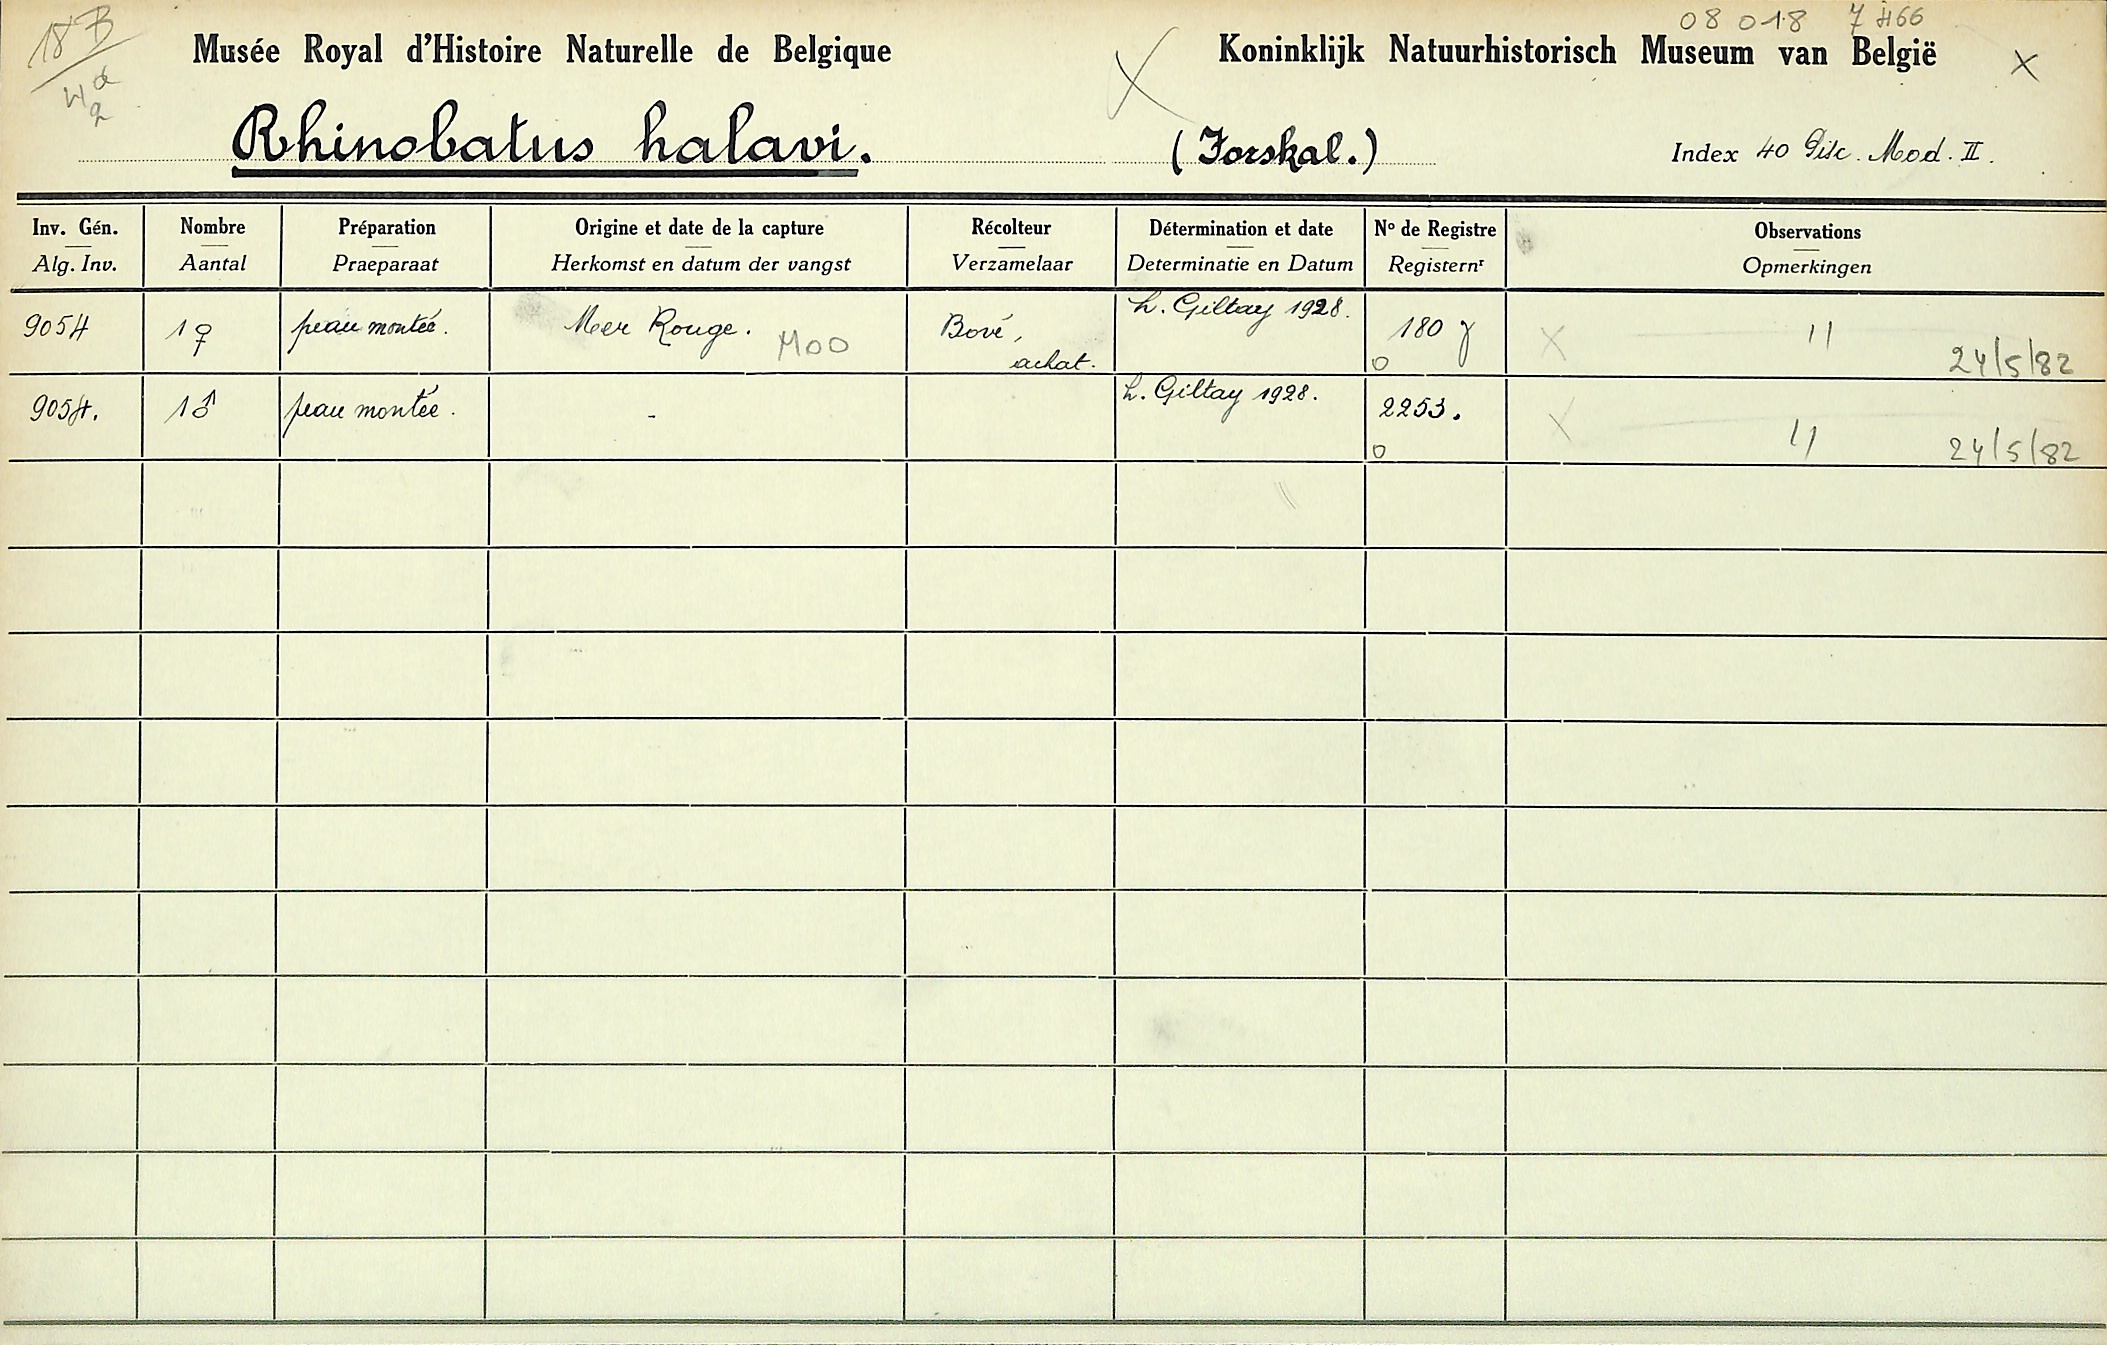 18B 08 018 7 466
Musée Royal d'Histoire Naturelle de Belgique Koninklijk Natuurhistorisch Museum van België X
Rhinobatus halavi. (Forskal.) Index 40 Pisc. Mod. II.
Inv. Gén. Nombre Préparation Origine et date de la capture Récolteur Détermination et date Nº de Registre Observations
Alg. Inv. Aantal Praeparaat Herkomst en datum der vangst Verzamelaar Determinatie en Datum Registernr Opmerkingen
9054 1 ♀ peau montée. Mer Rouge. M00 Bové, L. Giltay 1928. 180 γ X //
achat. o 24/5/82
9054. 1 ♂ peau montée. - L. Giltay 1928. 2253. X //
o 24/5/82